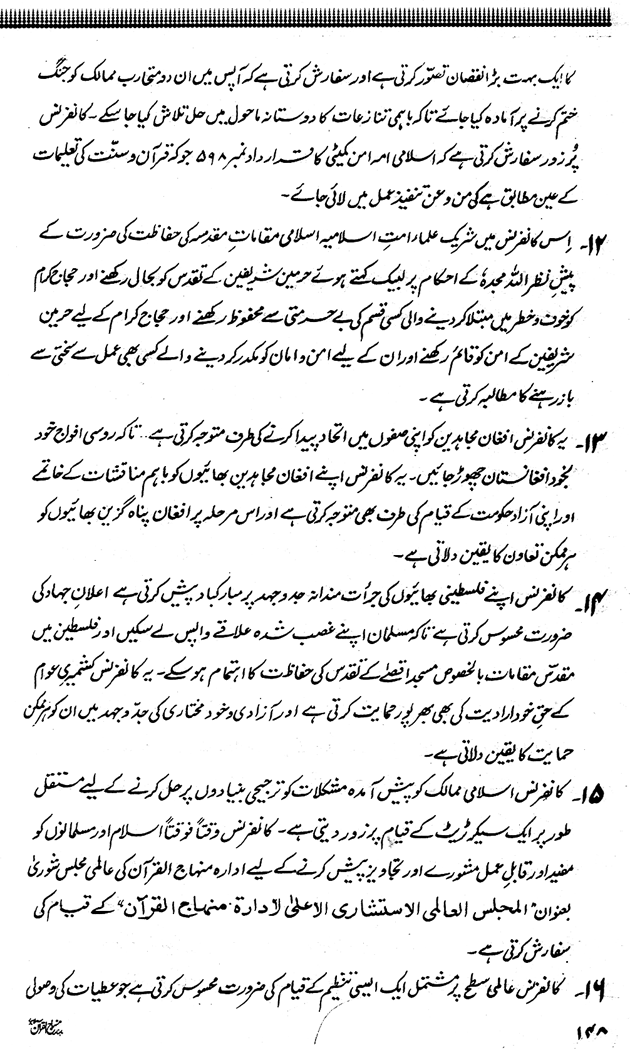 کا ایک بہت بڑا نقصان تصوّر کرتی ہے اور سفارش کرتی ہے کہ آپس میں ان دو متحارب ممالک کو جنگ
ختم کرنے پر آمادہ کیا جائے تاکہ باہمی تنازعات کا دوستانہ ماحول میں حل تلاش کیا جا سکے۔ کانفرنس
پُرزور سفارش کرتی ہے کہ اسلامی امہ امن کمیٹی کا قرارداد نمبر ۵۹۸ جو کہ قرآن و سنّت کی تعلیمات
کے عین مطابق ہے کی من و عن تنفیذ عمل میں لائی جائے۔
۱۲۔ اِس کانفرنس میں شریک علماء امتِ اسلامیہ اسلامی مقاماتِ مقدسہ کی حفاظت کی ضرورت کے
پیشِ نظر اللہ مجدہٗ کے احکام پر لبیک کہتے ہوئے حرمین شریفین کے تقدس کو بحال رکھنے اور حجاج کرام
کو خوف و خطر میں مبتلا کر دینے والی کسی قسم کی بے حرمتی سے محفوظ رکھنے اور حجاج کرام کے لیے حرمین
شریفین کے امن کو قائم رکھنے اور ان کے لیے امن و امان کو مکدر کر دینے والے کسی بھی عمل سے سختی سے
باز رہنے کا مطالبہ کرتی ہے۔
۱۳۔ یہ کانفرنس افغان مجاہدین کو اپنی صفوں میں اتحاد پیدا کرنے کی طرف متوجہ کرتی ہے۔ تاکہ روسی افواج خود
بخود افغانستان چھوڑ جائیں۔ یہ کانفرنس اپنے افغان مجاہدین بھائیوں کو باہم مناقشات کے خاتمے
اور اپنی آزاد حکومت کے قیام کی طرف بھی متوجہ کرتی ہے اور اس مرحلہ پر افغان پناہ گزین بھائیوں کو
ہر ممکن تعاون کا یقین دلاتی ہے۔
۱۴۔ کانفرنس اپنے فلسطینی بھائیوں کی جرأت مندانہ جدوجہد پر مبارکباد پیش کرتی ہے اعلانِ جہاد کی
ضرورت محسوس کرتی ہے تاکہ مسلمان اپنے غصب شدہ علاقے واپس لے سکیں اور فلسطین میں
مقدّس مقامات بالخصوص مسجد اقصےٰ کے تقدس کی حفاظت کا اہتمام ہو سکے۔ یہ کانفرنس کشمیری عوام
کے حقِ خود ارادیت کی بھی بھرپور حمایت کرتی ہے اور آزادی و خود مختاری کی جدوجہد میں ان کو ہر ممکن
حمایت کا یقین دلاتی ہے۔
۱۵۔ کانفرنس اسلامی ممالک کو پیش آمدہ مشکلات کو ترجیحی بنیادوں پر حل کرنے کے لیے مستقل
طور پر ایک سیکرٹریٹ کے قیام پر زور دیتی ہے۔ کانفرنس وقتاً فوقتاً اسلام اور مسلمانوں کو
مفید اور قابلِ عمل مشورے اور تجاویز پیش کرنے کے لیے ادارہ منہاج القرآن کی عالمی مجلس شوریٰ
بعنوان "المجلس العالمی الاستشاری الاعلیٰ لادارۃ منہاج القرآن" کے قیام کی
سفارش کرتی ہے۔
۱۶۔ کانفرنس عالمی سطح پر مشتمل ایک ایسی تنظیم کے قیام کی ضرورت محسوس کرتی ہے جو عطیات کی وصولی
۱۴۸